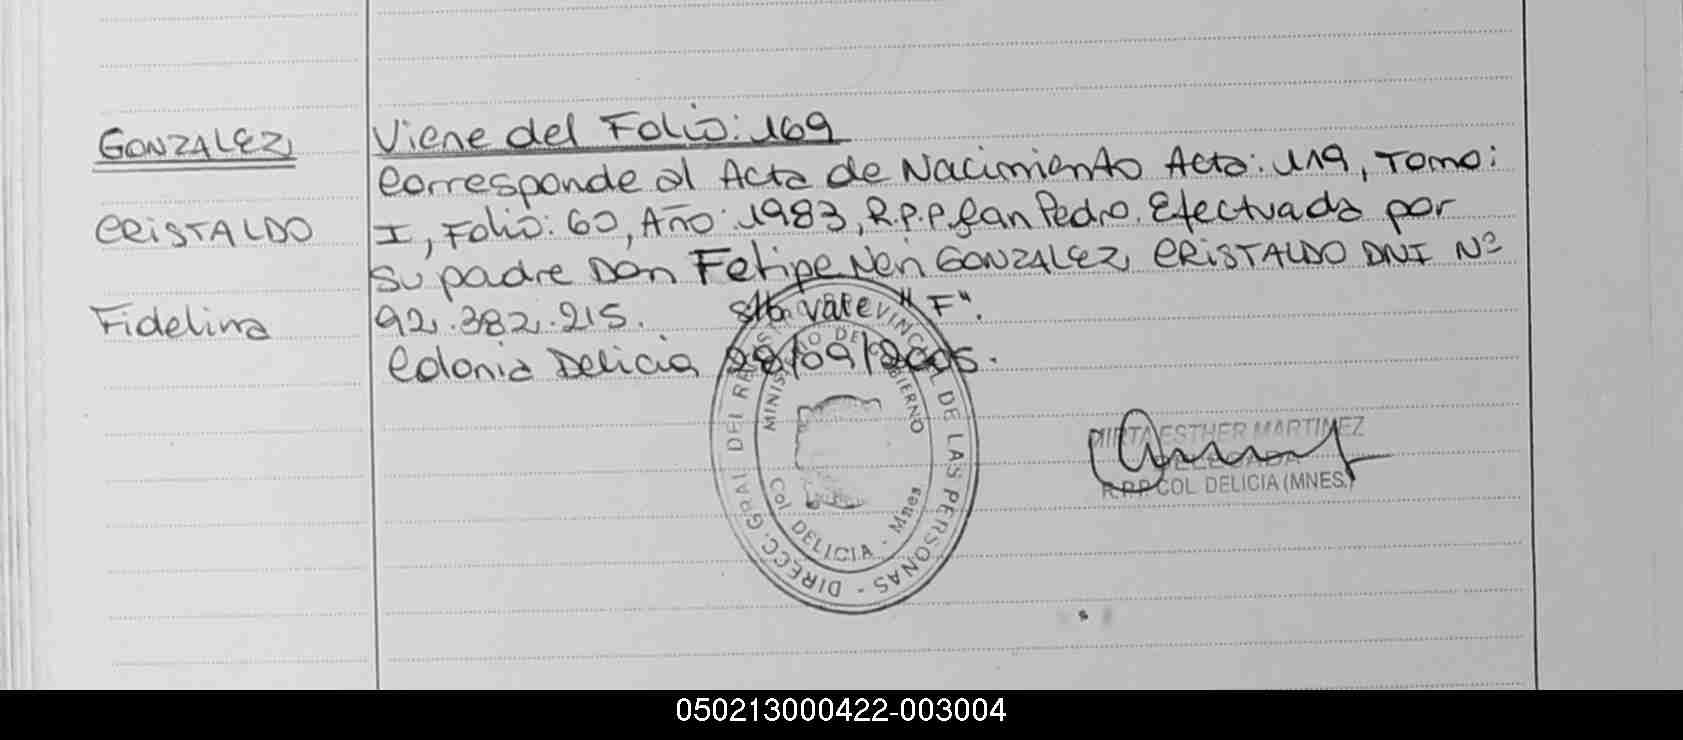 GONZALEZ
CRISTALDO
Fidelina
Viene del Folio: 169
Corresponde al Acta de Nacimiento Acta: 119, Tomo:
I, Folio: 60, Año: 1983, R.P.P. San Pedro. Efectuada por
su padre Don Felipe Neri GONZALEZ CRISTALDO DNI Nº
92.382.215. vale "F".
Colonia Delicia 28/09/2005.
DIRECC. GRAL DEL REGIST PROVINCIAL DE LAS PERSONAS -
MINISTERIO DE GOBIERNO
Col DELICIA - Mnes
MIRTA ESTHER MARTINEZ
DELEGADA
R.P.P. COL DELICIA (MNES.)
050213000422-003004